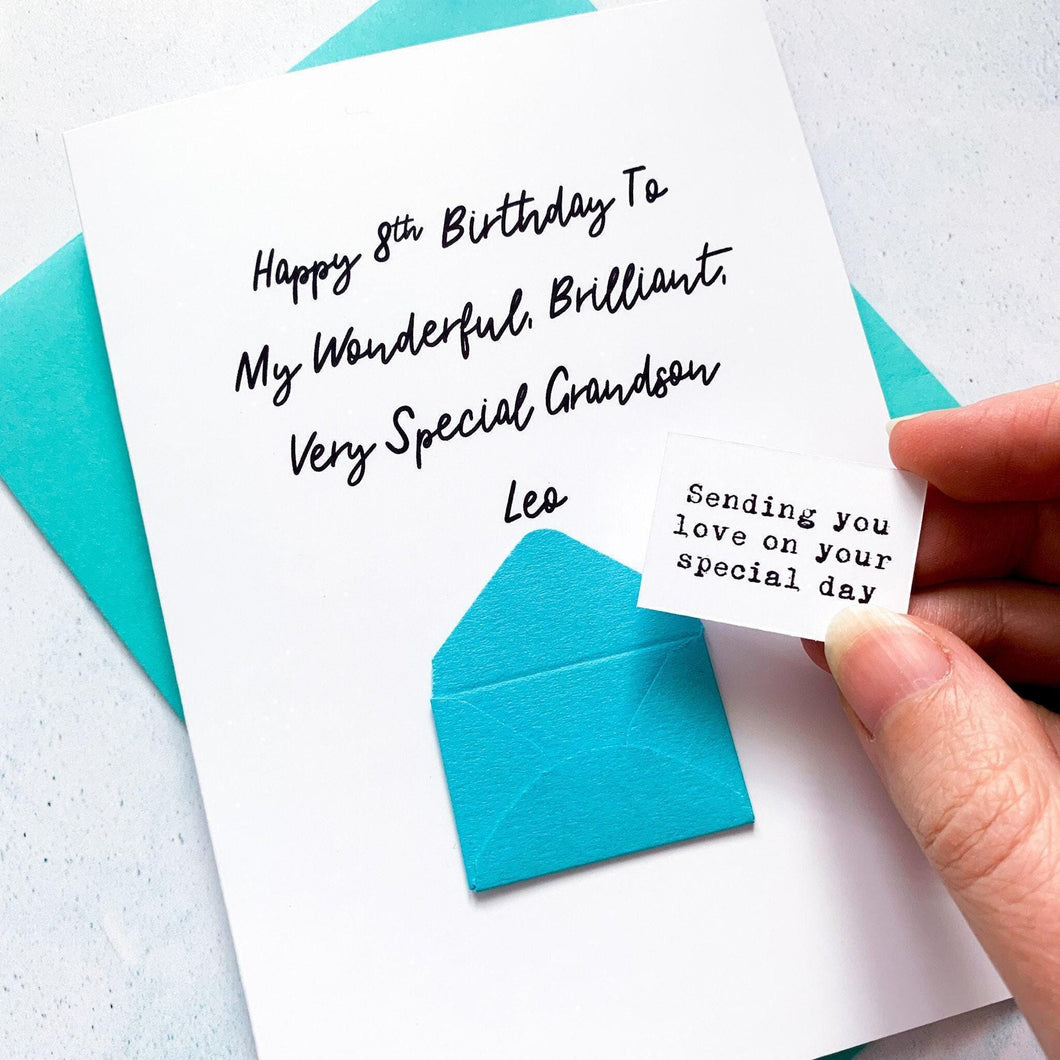 Happy 8th Birthday To
My Wonderful, Brilliant,
Very Special Grandson
Leo
Sending you
love on your
special day